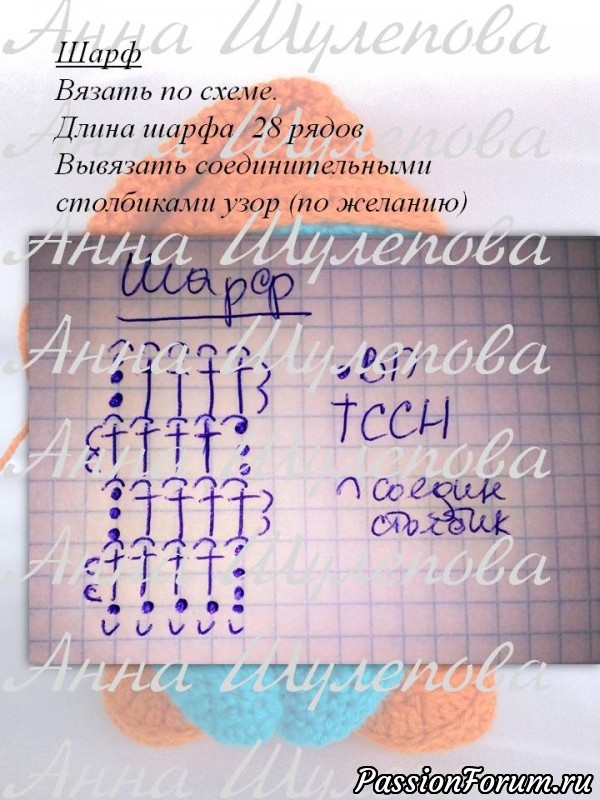 Анна Шулепова
Шарф
Вязать по схеме.
Анна Шулепова
Длина шарфа 28 рядов
Вывязать соединительными
столбиками узор (по желанию)
Анна Шулепова
Шарф
Анна Шулепова
ВП
ССН
Анна Шулепова
соедин
столбик
Анна Шулепова
Анна Шулепова
Анна Шулепова
PassionForum.ru